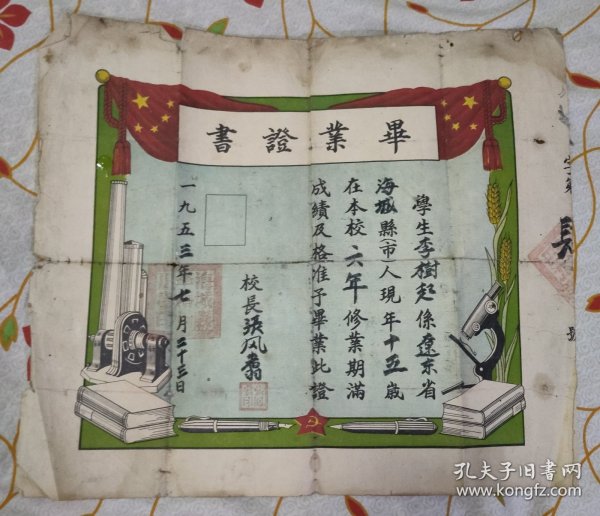 畢業證書
學生李樹起係遼東省
海城縣(市)人現年十五歲
在本校六年修業期滿
成績及格准予畢業此證
校長張風翥
一九五三年七月二十三日
孔夫子旧书网
www.kongfz.com